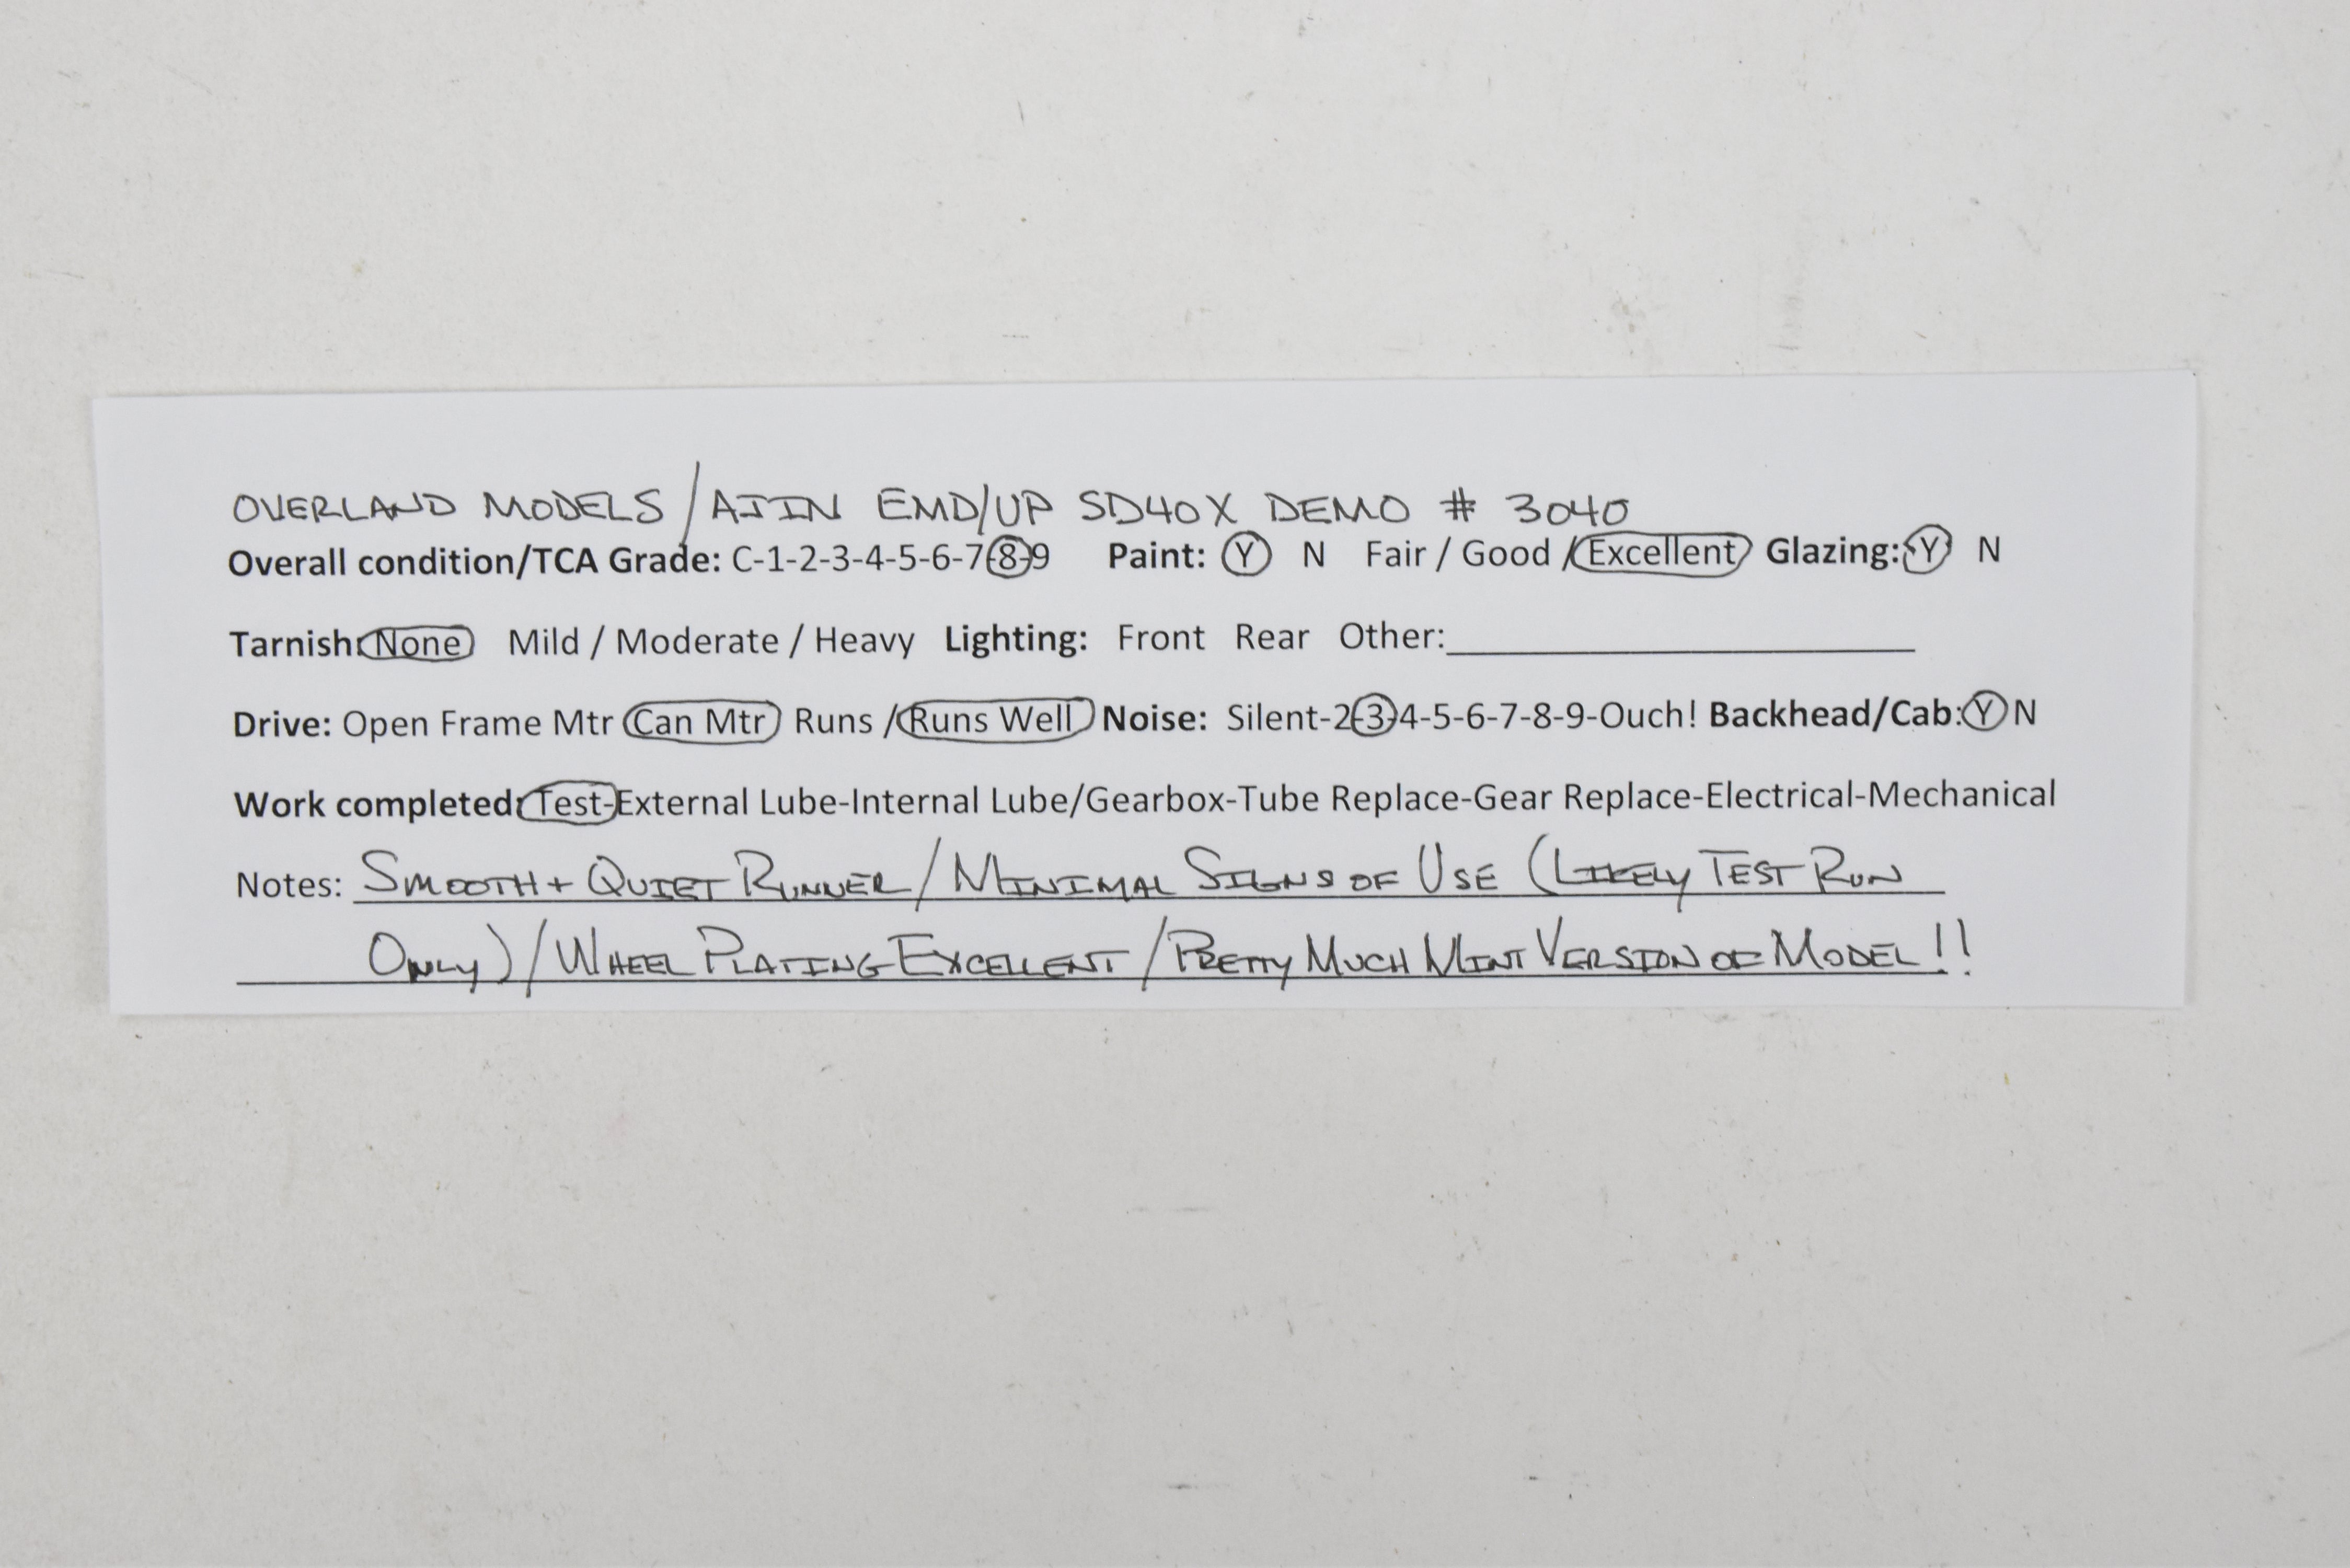 OVERLAND MODELS / AJIN EMD/UP SD40X DEMO # 3040
Overall condition/TCA Grade: C-1-2-3-4-5-6-7-8-9 Paint: Y N Fair / Good / Excellent Glazing: Y N
Tarnish: None Mild / Moderate / Heavy Lighting: Front Rear Other:____________________
Drive: Open Frame Mtr Can Mtr Runs / Runs Well Noise: Silent-2-3-4-5-6-7-8-9-Ouch! Backhead/Cab: Y N
Work completed: Test-External Lube-Internal Lube/Gearbox-Tube Replace-Gear Replace-Electrical-Mechanical
Notes: SMOOTH + QUIET RUNNER / MINIMAL SIGNS OF USE (LIKELY TEST RUN
ONLY) / WHEEL PLATING EXCELLENT / PRETTY MUCH MINT VERSION OF MODEL!!